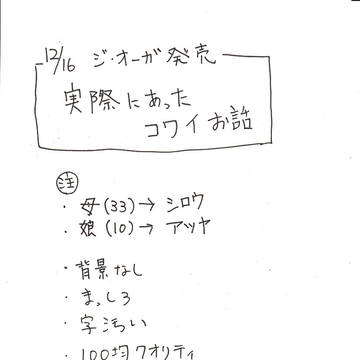 12/16 ジ・オーガ発売
実際にあった
コワイお話
注
・母(33)→シロウ
・娘(10)→アツヤ
・背景なし
・まっしろ
・字汚い
・100均クオリティ